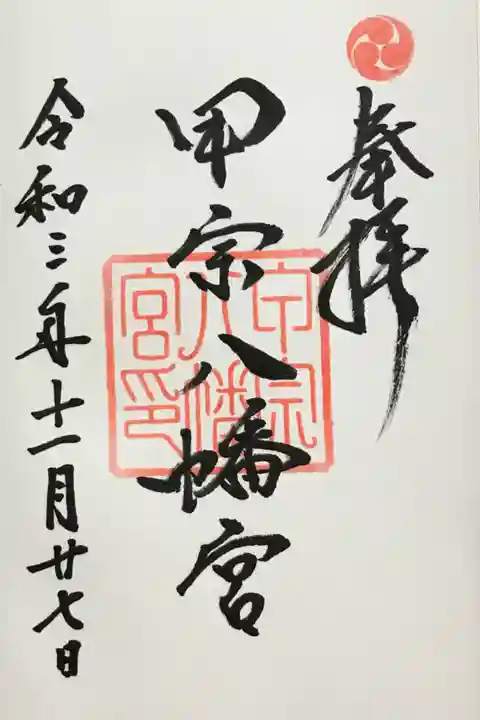 奉拝
甲宗八幡宮
甲宗八幡宮印
令和三年十一月廿七日